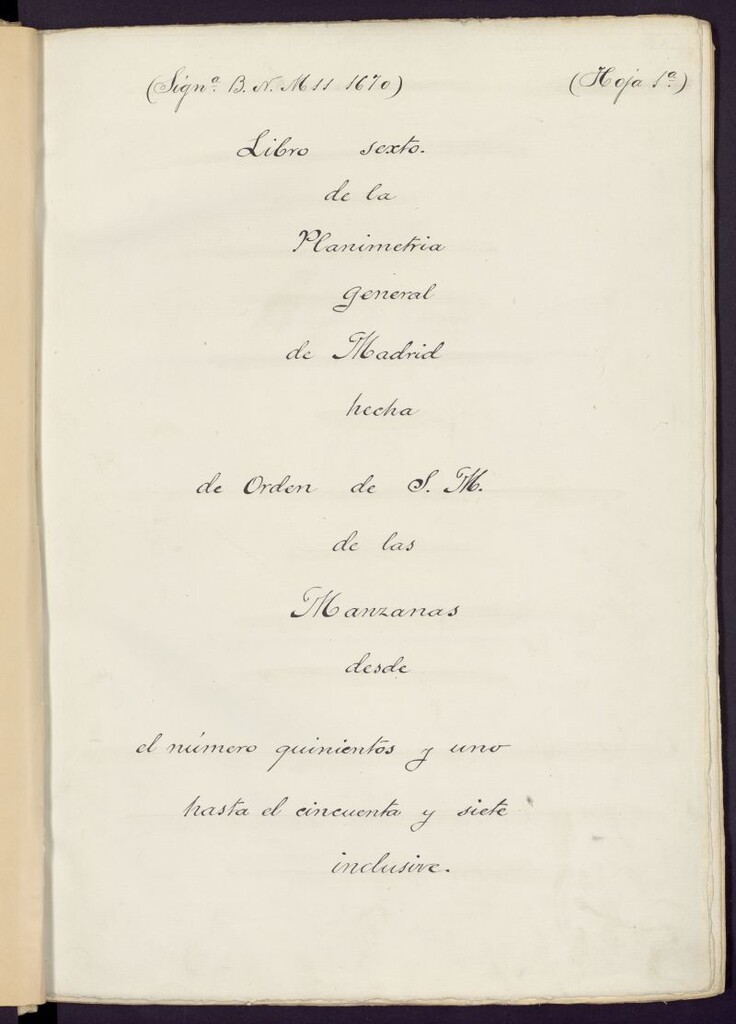 (Sign.ª B. N. Mss 1670) (Hoja 1ª)
Libro sexto.
de la
Planimetria
general
de Madrid
hecha
de Orden de S. M.
de las
Manzanas
desde
el número quinientos y uno
hasta el cincuenta y siete
inclusive.